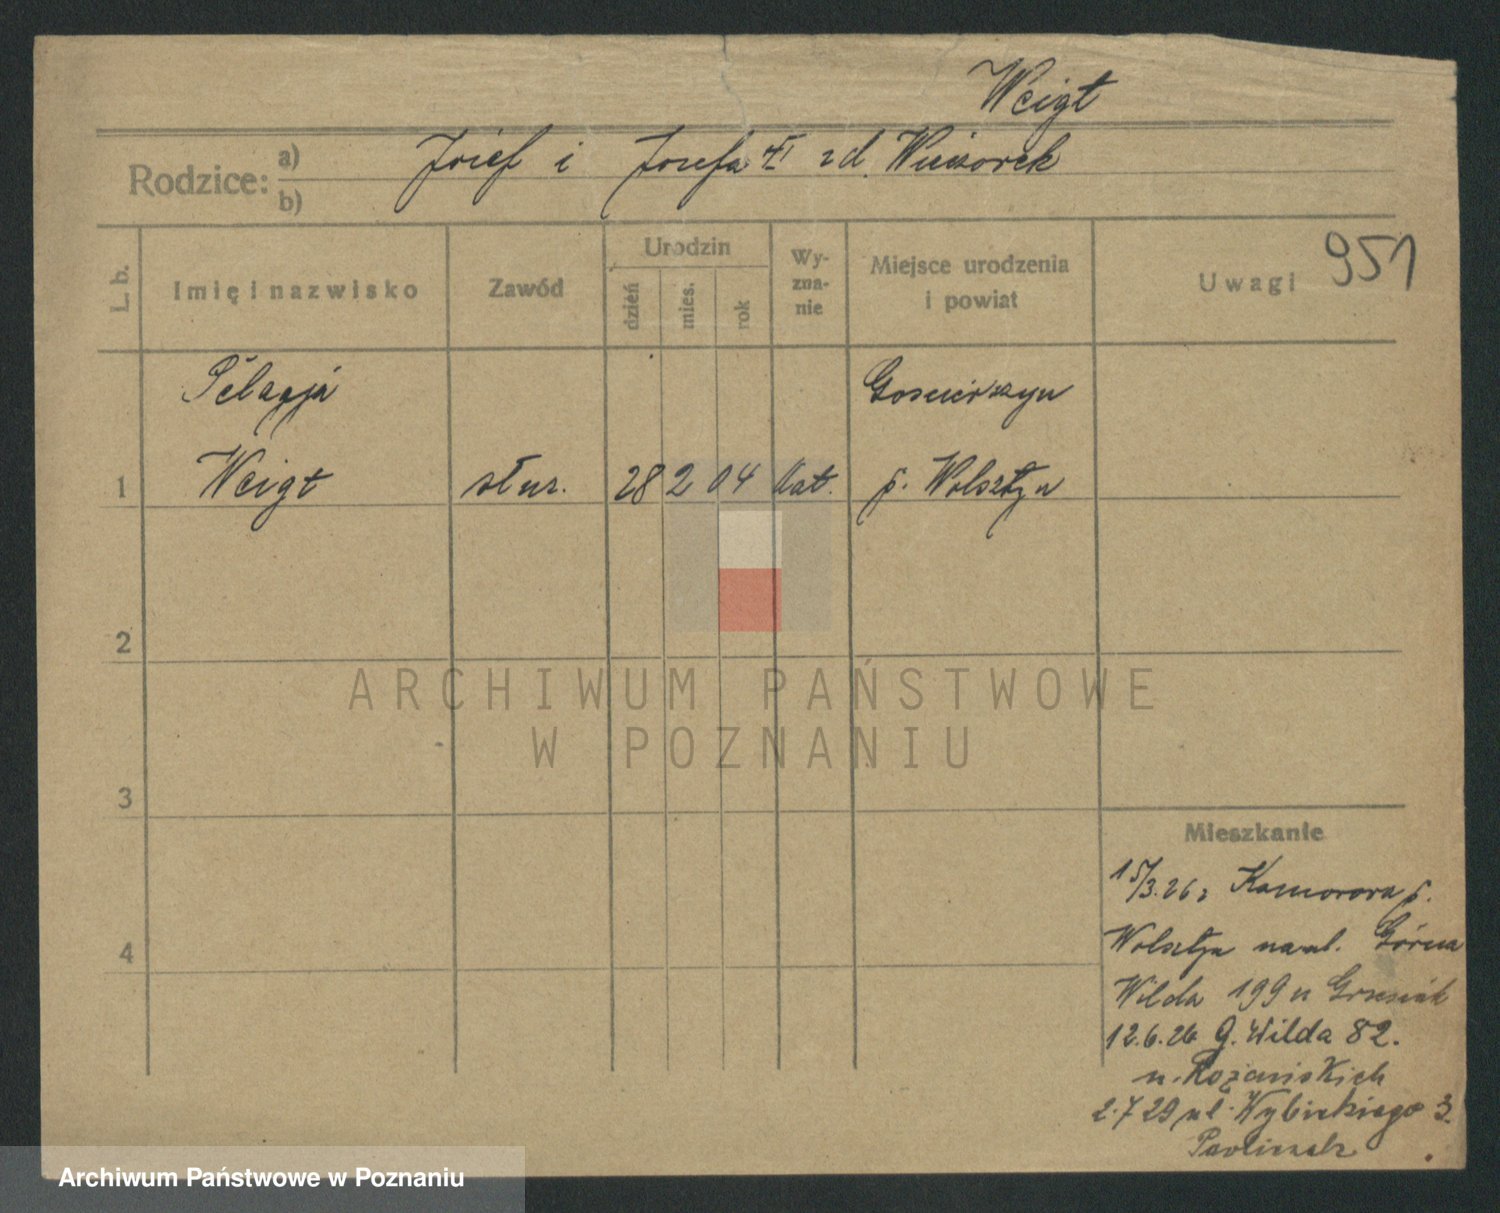 Weigt
Rodzice: a) b)
Józef i Józefa zd. Wieczorek
L. b.
Imię i nazwisko
Zawód
Urodzin
dzień
mies.
rok
Wy-
zna-
nie
Miejsce urodzenia
i powiat
Uwagi
951
Pelagja
Gościerzyn
1 Weigt służ. 28 2 04 kat. p. Wolsztyn
2
ARCHIWUM PAŃSTWOWE
W POZNANIU
3
Mieszkanie
15/3.26 z Komorowa p.
4
Wolsztyn na ul. Górna
Wilda 199 u Grzesiak
12.6.26 G. Wilda 82.
u. Rożańskich
2.7 29 ul. Wybickiego 3.
Archiwum Państwowe w Poznaniu